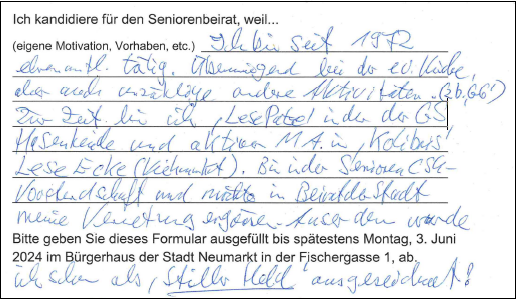 Ich kandidiere für den Seniorenbeirat, weil...
(eigene Motivation, Vorhaben, etc.) Ich bin seit 1972
ehrenamtl. tätig. Überwiegend bei der ev. Kirche,
aber auch unzählige andere Aktivitäten.
Zur Zeit bin ich "LesePate" in der GS
Hasenheide und aktiver M.A. in "Kolibris"
LeseEcke (Viehmarkt). Bin in der Senioren CSU-
Vorstandschaft und möchte in Beirat der Stadt
meine Vernetzung ergänzen. Ausserdem wurde
Bitte geben Sie dieses Formular ausgefüllt bis spätestens Montag, 3. Juni
2024 im Bürgerhaus der Stadt Neumarkt in der Fischergasse 1, ab.
ich schon als "Stiller Held" ausgezeichnet!